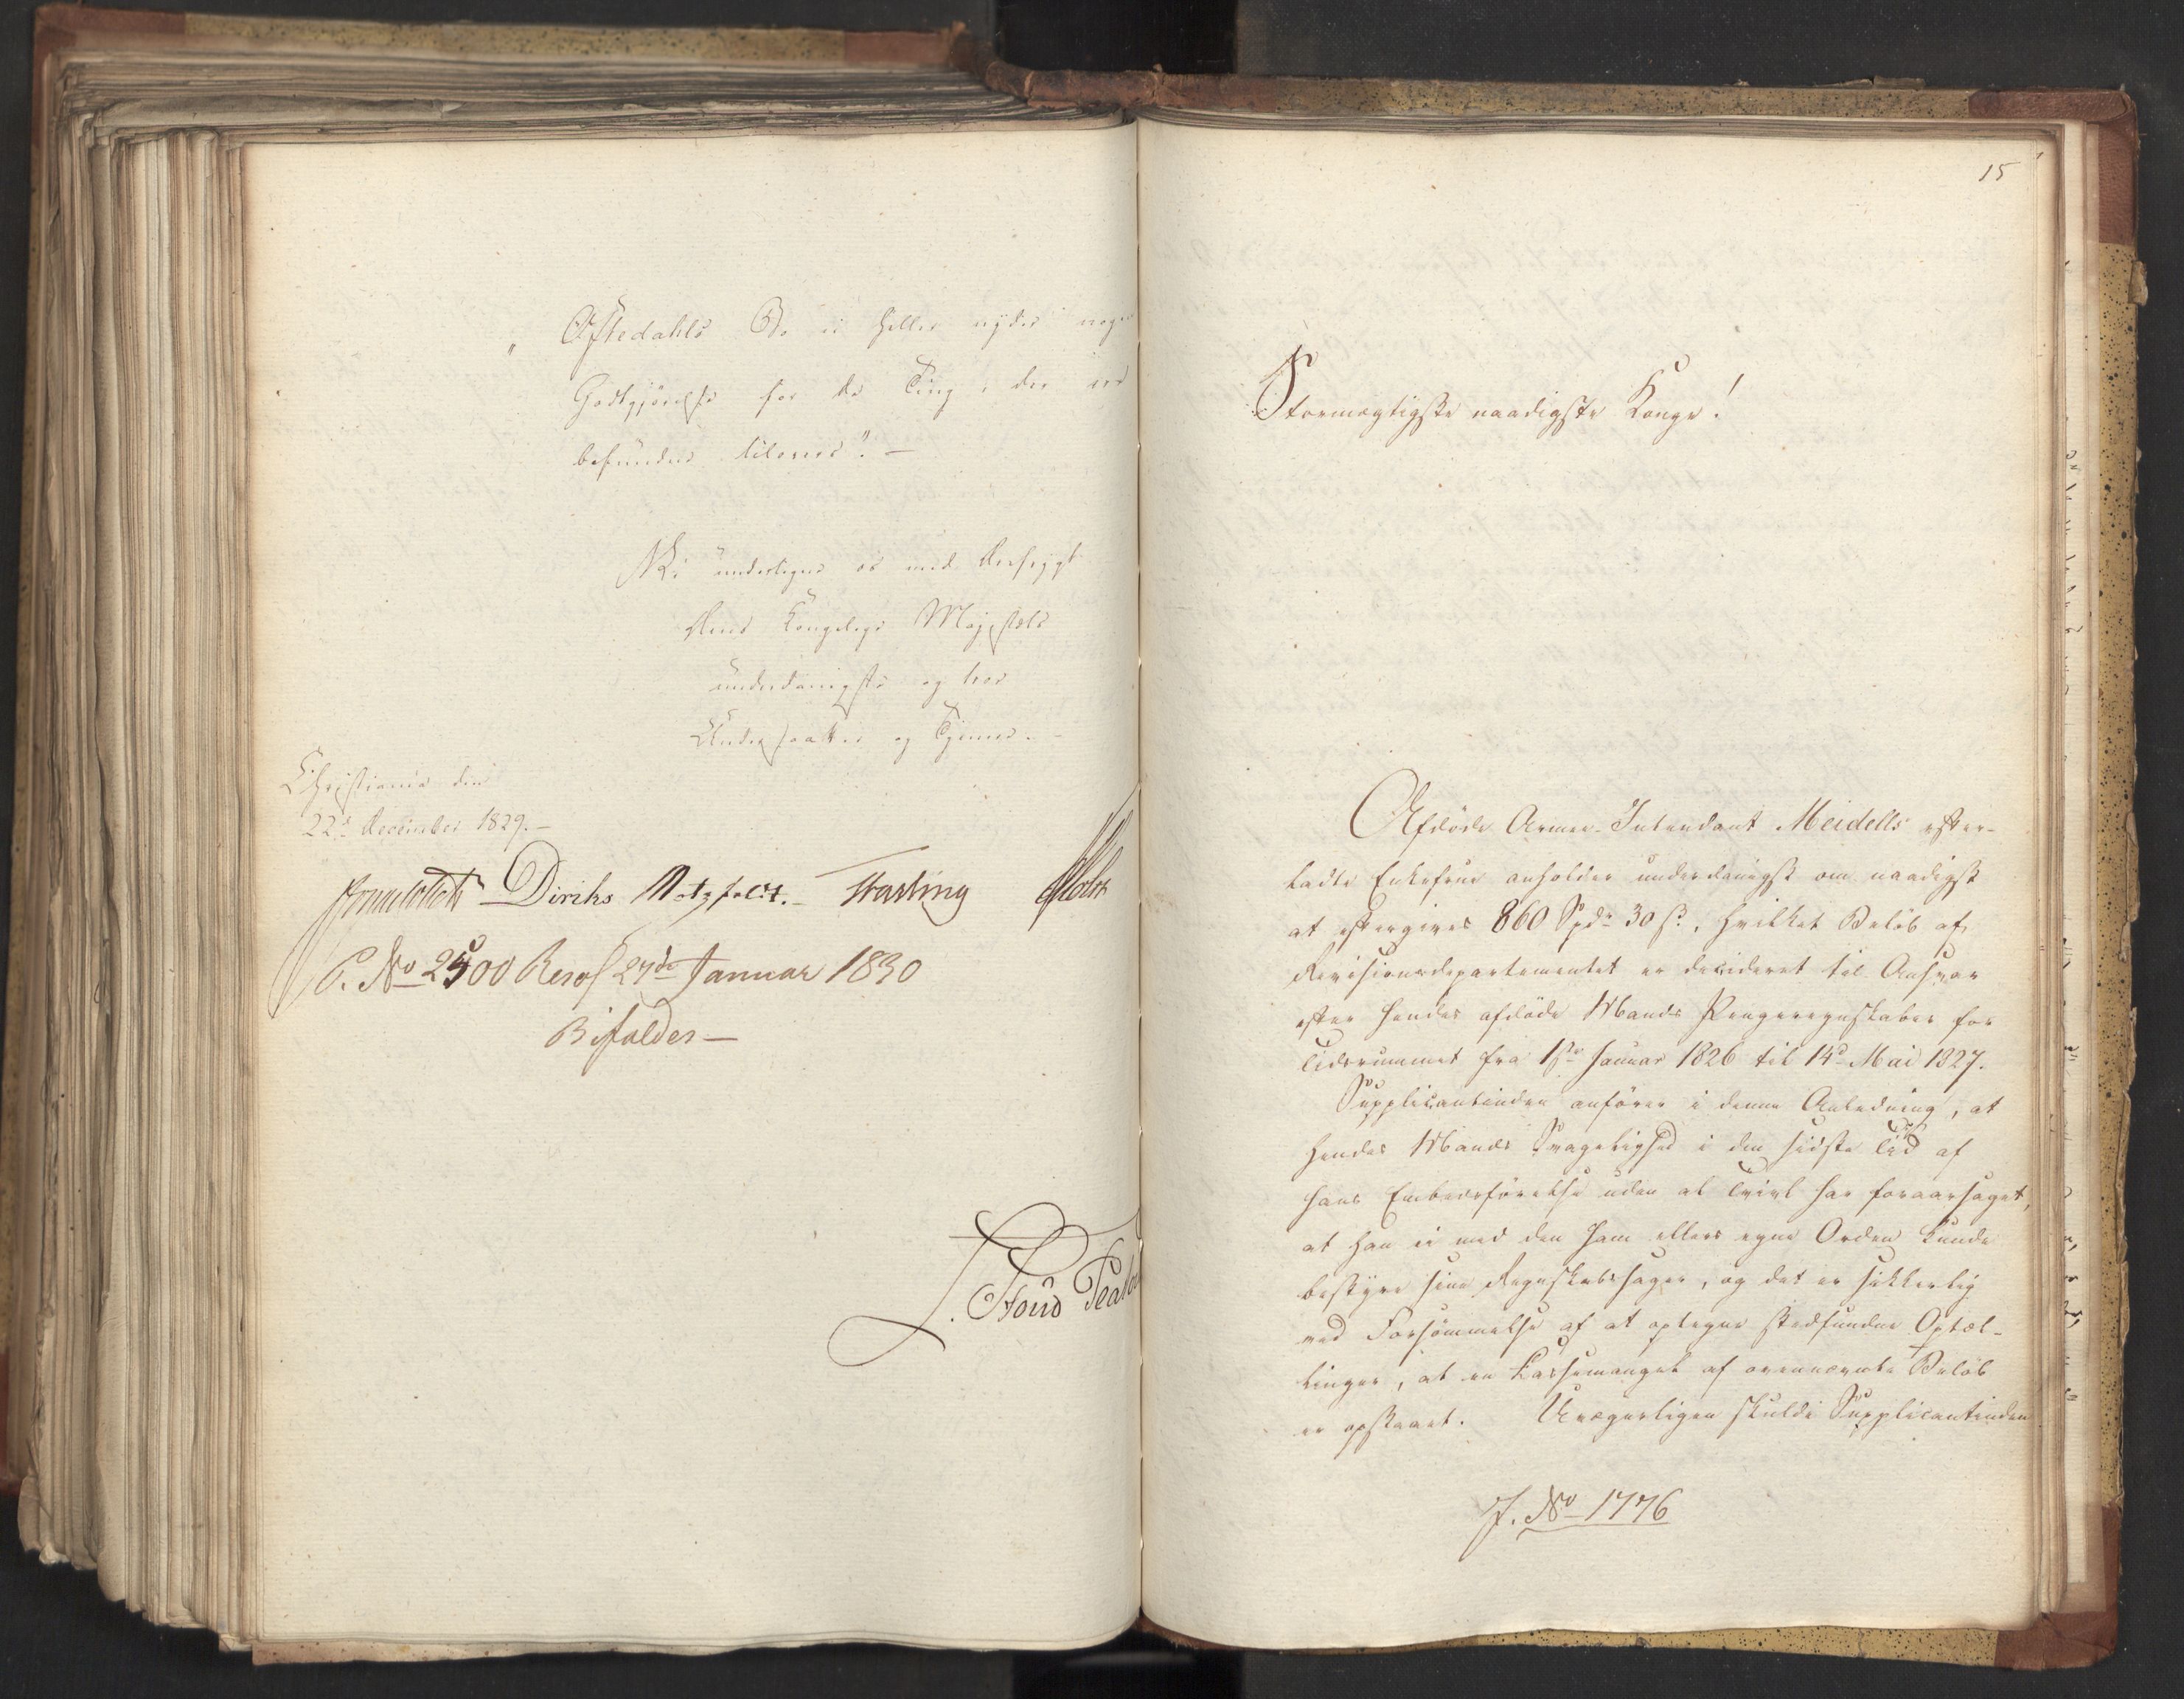 „ Oftedahls Bo ei heller nyder noge
Godtgjörelse for de Ting, der ere
befundne tilovers". –
Vi undertegne os med Dybeste
Deres Kongelige Majestæts
underdanigste og troe
Undersaatter og Tjenere. –
Christiania den
22d December 1829. –
Diriks Motzfeldt. – Fasting Holst
P. No 2500 Resol 27de Januar 1830
Bifaldes –
15
Stormægtigste naadigste Konge!
Afdöde Armee-Intendant Meidells efter-
ladte Enkefrue anholder underdanigst om naadigst
at eftergives 860 Spdr 30 s., hvilket Belöb af
Revisionsdepartementet er decideret til Ansvar
efter hendes afdöde Mands Pengeregnskaber for
Tidsrummet fra 1ste Januar 1826 til 14d Mai 1827.
Supplicantinden anförer i denne Anledning, at
hendes Mands Svagelighed i den sidste Tid af
hans Embedsförelse uden al Tvivl har foraarsaget,
at han ei med den ham ellers egne Orden kunde
bestyre sine Regnskabssager, og det er sikkerlig
ved Forsömmelse af at optegne stedfundne Optæl-
linger, at en Kassemangel af ovennævnte Belöb
er opstaaet. Uvægerligen skulde Supplicantinden
J. No 1776